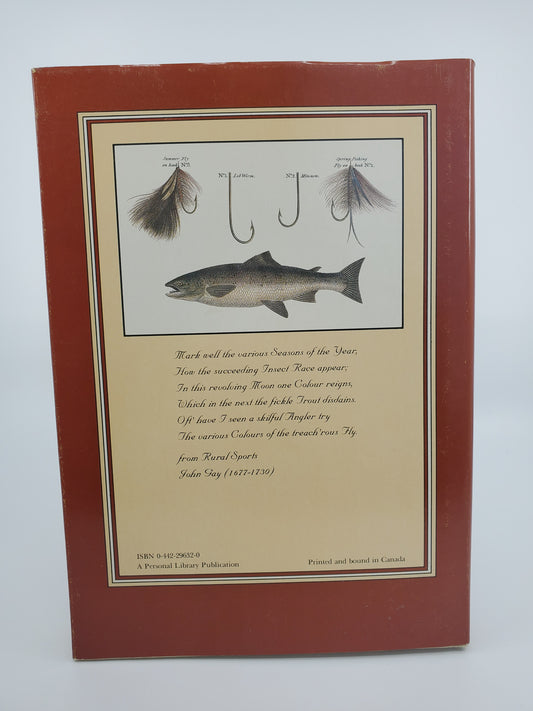 Summer Fly
on hook Nº2.
Nº1. Lob Worm.
Nº2. Minnow.
Spring Fishing
Fly on hook Nº1.
Mark well the various Seasons of the Year,
How the succeeding Insect Race appear;
In this revolving Moon one Colour reigns,
Which in the next the fickle Trout disdains.
Oft' have I seen a skilful Angler try
The various Colours of the treach'rous Fly.
from Rural Sports
John Gay (1677-1730)
ISBN 0-442-29632-0
A Personal Library Publication
Printed and bound in Canada